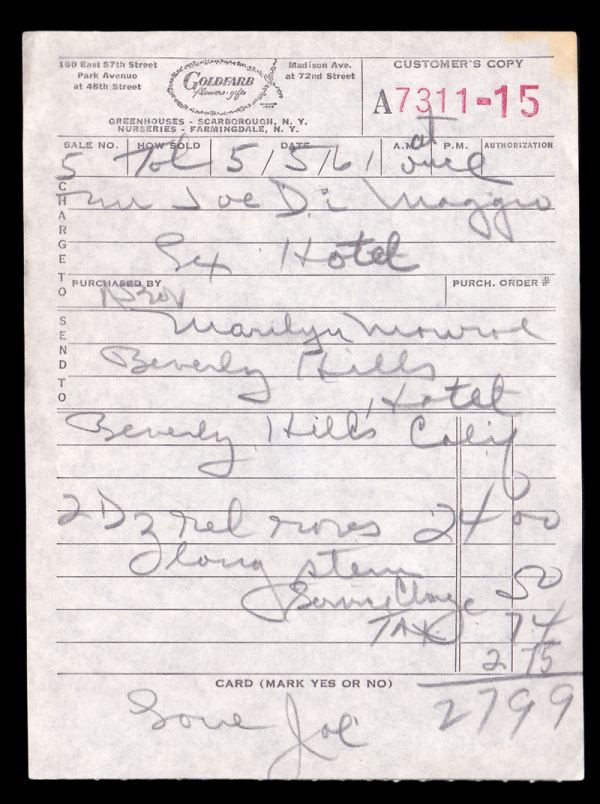 160 East 57th Street
Park Avenue
at 48th Street
GOLDFARB
flowers-gifts
Madison Ave.
at 72nd Street
GREENHOUSES - SCARBOROUGH, N. Y.
NURSERIES - FARMINGDALE, N. Y.
CUSTOMER'S COPY
A7311-15
SALE NO. HOW SOLD DATE A.M. P.M. AUTHORIZATION
5 Tol 5/5/61 at once
CHARGE TO
Mr Joe Di Maggio
Lex Hotel
PURCHASED BY
PURCH. ORDER #
SEND TO
Marilyn Monroe
Beverly Hills
Hotel
Beverly Hills Calif
2 Dz red roses 24 00
long stem
Service Charge 50
TAX 74
2 75
CARD (MARK YES OR NO)
2799
Love Joe